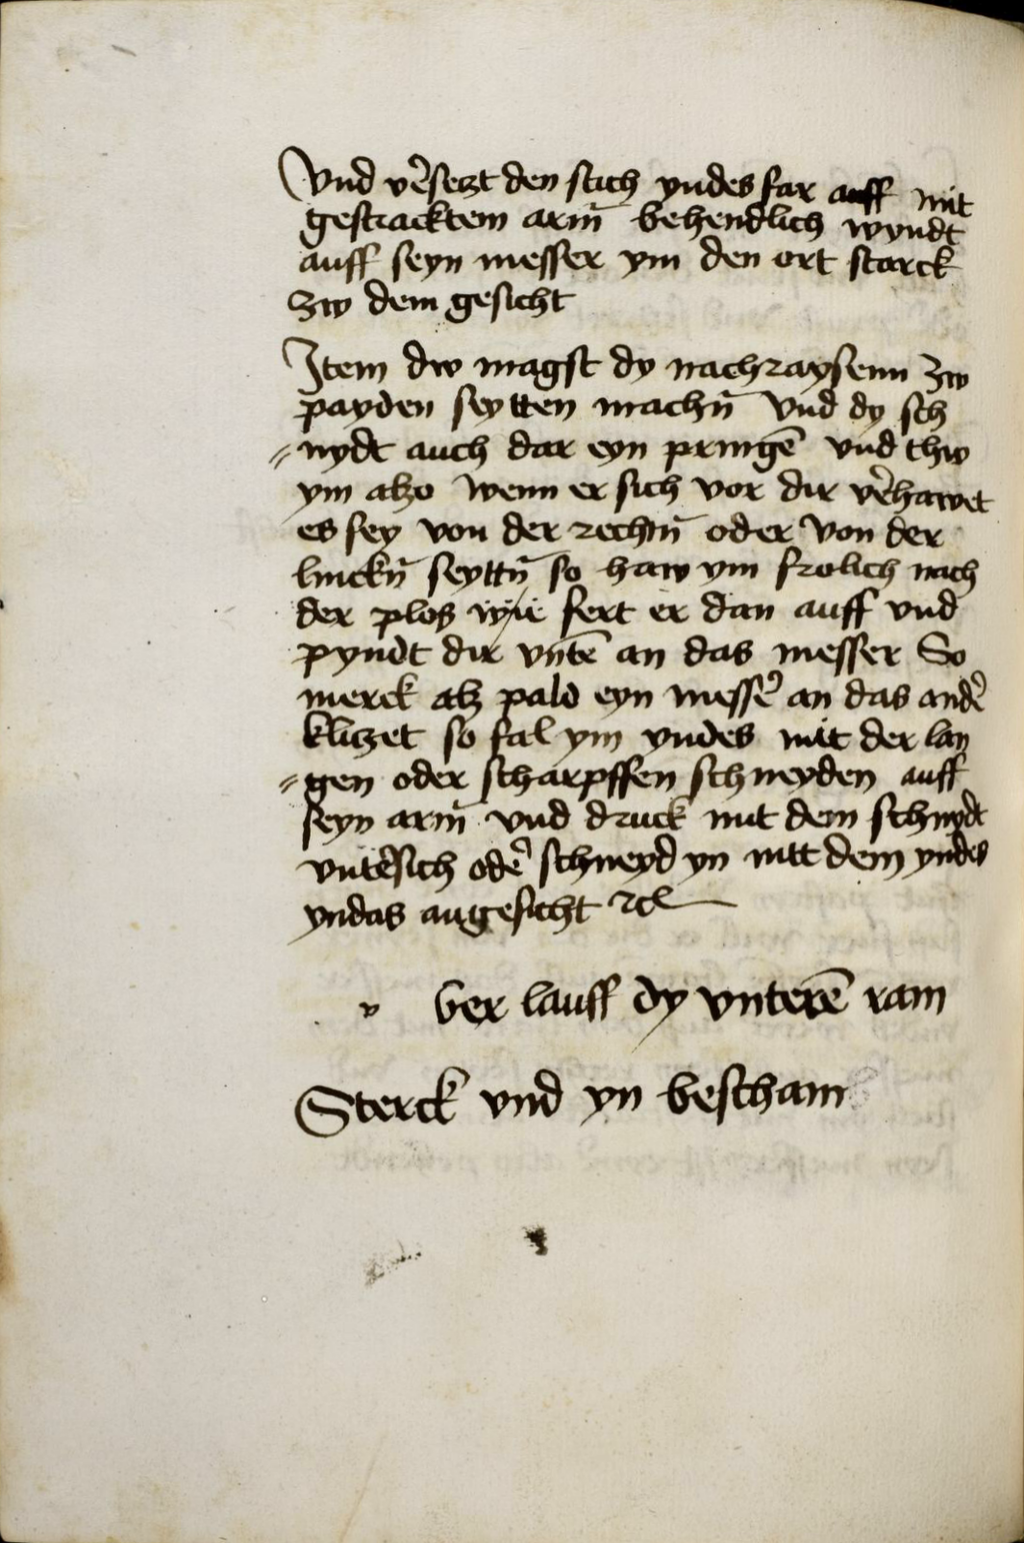 Vnd v̉setzt den stich yndes far auff mit
gestracktem arm̄ behendlich wyndt
auff seyn messer ym den ort starck
zw dem gesicht
Item dw magst dy nachraysenn zw
payden seytten machn̄ Vnd dy sch
⸗nydt auch dar eyn pringē vnd thw
ym alzo Wenn er sich vor dir v̉hawet
es sey von der rechtn̄ oder Von der
linckn̄ seyttn̄ so haw ym frolich nach
der plos wye fert er dan auff vnd
pyndt dir vntē an das messer So
merck alz pald eyn mess̉ an das and̉
klitzet so fal ym yndes mit der lan
⸗gen oder scharpffen schneyden auff
seyn arm̄ vnd druck mit dem schnydt
vnt̉sich od̉ schneyd yn mit dem yndes
yndas angesicht ꝛc
v ber lauff dy vnterē ram
Sterck vnd yn bescham